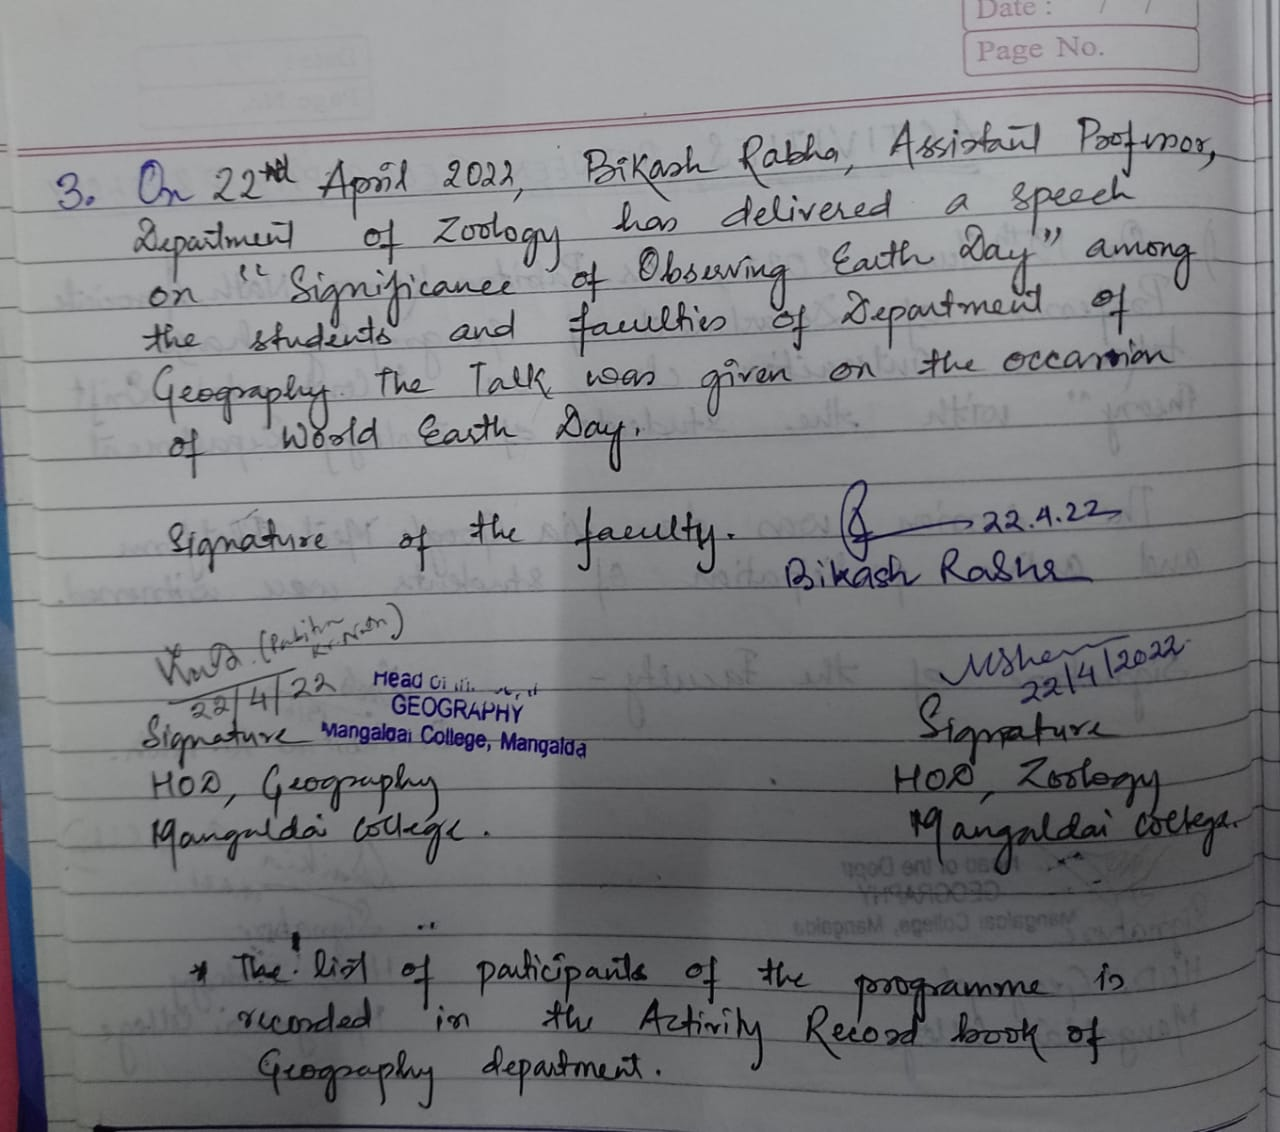 Date : / /
Page No.
3. On 22nd April 2022, Bikash Rabha, Assistant Professor,
Department of Zoology has delivered a speech
on "Significance of Observing Earth Day" among
the students and faculties of Department of
Geography. The Talk was given on the occassion
of World Earth Day.
Signature of the faculty. 22.4.22
Bikash Rabha
(Pabitra Kr. Nath)
22/4/22
Head
GEOGRAPHY
Mangaldai College, Mangalda
Signature
HOD, Geography
Mangaldai College.
22/4/2022
Signature
HOD, Zoology
Mangaldai College.
* The list of participants of the programme is
recorded in the Activity Record book of
Geography department.